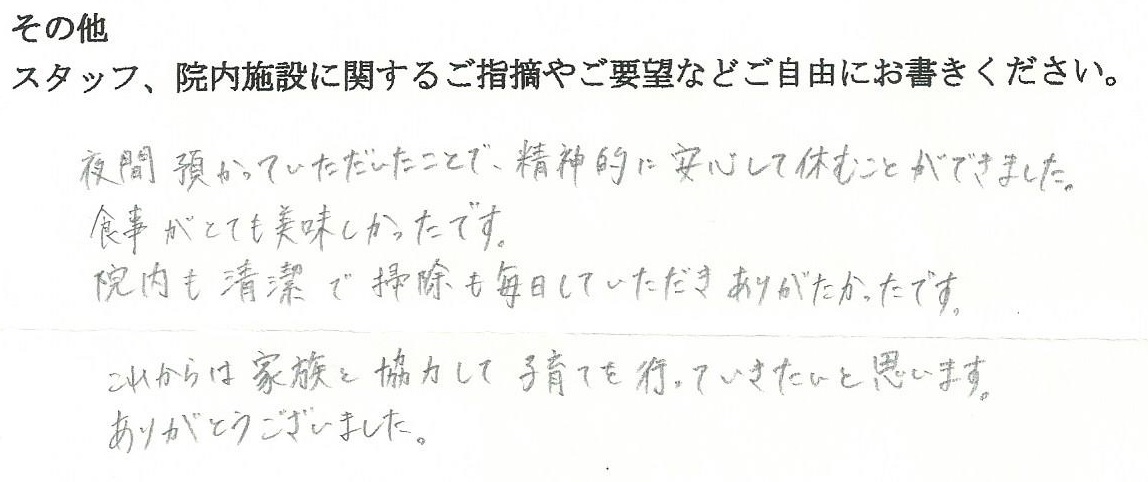 その他
スタッフ、院内施設に関するご指摘やご要望などご自由にお書きください。
夜間預かっていただいたことで、精神的に安心して休むことができました。
食事がとても美味しかったです。
院内も清潔で掃除も毎日していただきありがたかったです。
これからは家族と協力して子育てを行っていきたいと思います。
ありがとうございました。